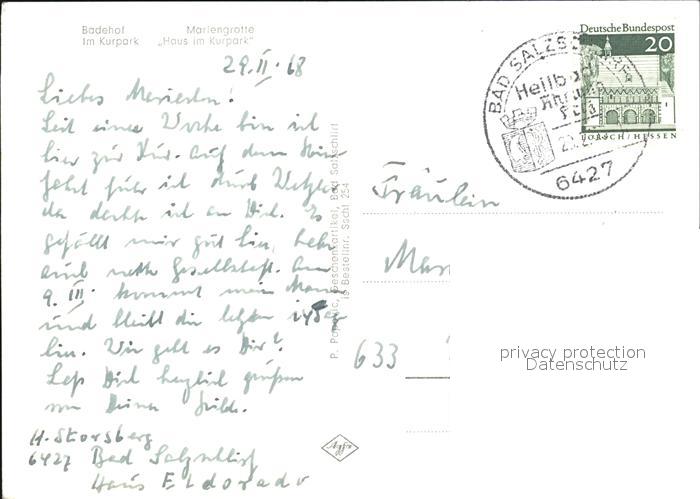 Badehof Mariengrotte
Im Kurpark „Haus im Kurpark"
29.II.68
Liebes
Seit einer Woche bin ich
hier zur Kur. Auf dem Hin
fahrt fuhr ich durch Wetzlar
da dachte ich an Dich. Es
gefällt mir gut hier, habe
auch nette Gesellschaft. Am
9. III. kommt mein Mann
und bleibt die letzten Tage
hier. Wie geht es Dir?
Laß Dich herzlich grüßen
von Deiner Hilde.
H. Storsberg
6427 Bad Salzschlirf
Haus Eldorado
Salzschlirf
is Bestellnr. Sscht 254
Agfa
Deutsche Bundespost
20
LORSCH/HESSEN
BAD SALZSCHLIRF
Heilbad
6427
Fräulein
633
privacy protection
Datenschutz